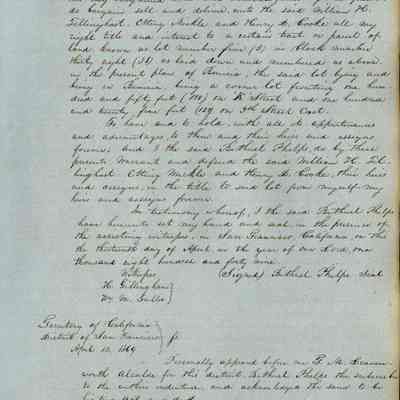 do bargain sell and deliver, unto the said William H.
Tillinghast. Otting Meckle and Henry D. Cooke all my
right title and interest to a certain tract or parcel of
land known as lot number five (5) in block number
thirty eight (38) as laid down and numbered as above
in the present plan of Benicia, the said lot lying and
being in Benicia, being a corner lot fronting one hun-
dred and fifty feet (150) on K Street and one hundred
and twenty five feet (125) on Street East.
To have and to hold, with all its appurtenances
and advantages, to them and their heirs and assigns
forever; and I the said Bethuel Phelps, do by these
presents Warrant and defend the said William H. Til-
linghast. Otting Meckle and Henry D. Cooke, their heirs
and assigns, in the title to said lot from myself my
heirs and assigns forever.
In testimony whereof, I the said Bethuel Phelps
have hereunto set my hand and seal in the presence of
the assisting witnesses, in San Francisco, California, on this
the thirteenth day of April, in the year of our Lord, one
thousand eight hundred and forty nine
Witnesses (Signed) Bethuel Phelps seal
H. Gillingham
Wm M.
Territory of California
District of San Francisco } ss
April 13, 1849
Personally appeared before me T. M. Leaven-
worth alcalde for this district, Bethuel Phelps the subscriber
to the within indenture, and acknowledged the same to be